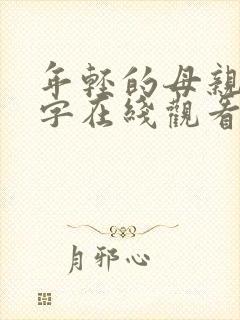 年轻的母親
字在綫觀看
月邪心